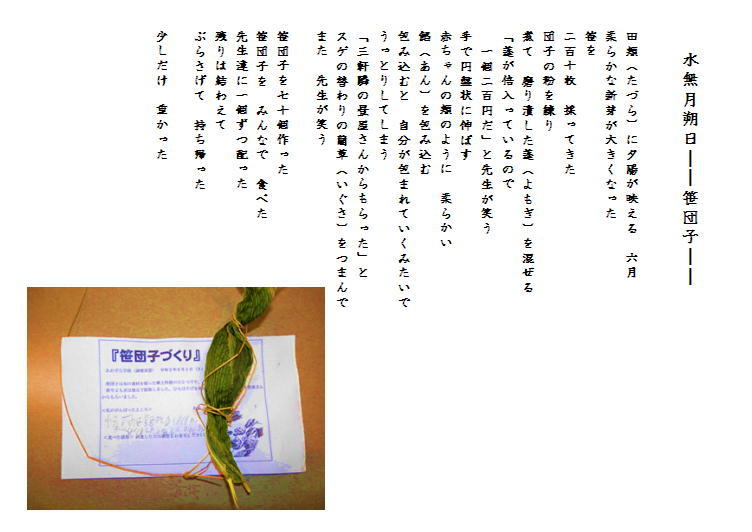 水無月朔日――笹団子――
田頬（たづら）に夕陽が映える　六月
柔らかな新芽が大きくなった
笹を
二百十枚　採ってきた
団子の粉を練り
煮て　磨り潰した蓬（よもぎ）を混ぜる
「蓬が倍入っているので
一個二百円だ」と先生が笑う
手で円盤状に伸ばす
赤ちゃんの頬のように　柔らかい
餡（あん）を包み込む
包み込むと　自分が包まれていくみたいで
うっとりしてしまう
「三軒隣の畳屋さんからもらった」と
スゲの替わりの藺草（いぐさ）をつまんで
また　先生が笑う
笹団子を七十個作った
笹団子を　みんなで　食べた
先生達に一個ずつ配った
残りは結わえて
ぶらさげて　持ち帰った
少しだけ　重かった
『笹団子づくり』